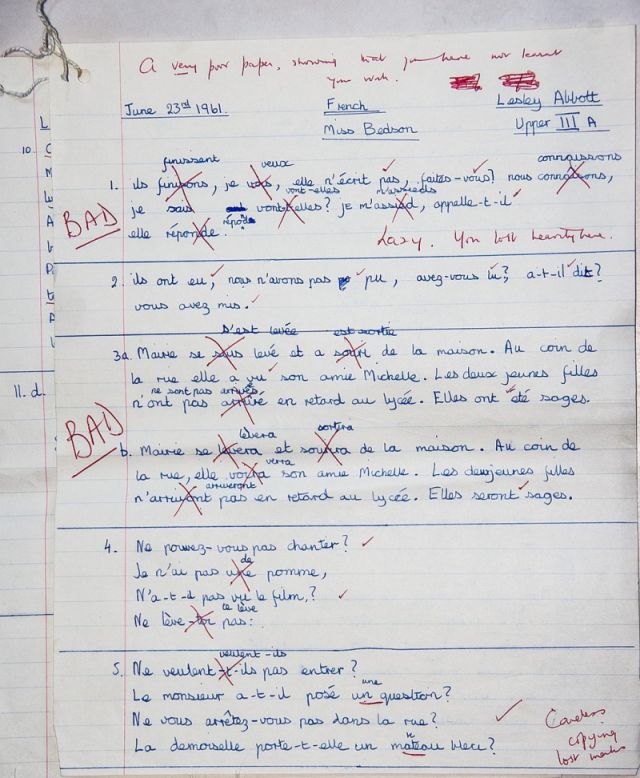 A very poor paper, showing that you have not learnt
your work.
June 23rd 1961. French Lesley Abbott
Miss Bedson Upper III A
10.
L
C
M
L
A
V
P
L
A
V
11. d.
finissent veux connaissons
1. ils finissons, je vois, elle n'écrit pas, faites-vous? nous connaisons,
vont-elles m'assieds
BAD
je sais vont-elles? je m'assied, appelle-t-il
répond
elle réponde.
Lazy. You lost heavily here.
2. ils ont eu, nous n'avons pas pu, avez-vous lu?, a-t-il dit?
vous avez mis.
s'est levée est sortie
3a. Marie se sous levé et a souri de la maison. Au coin de
la rue elle a vu son amie Michelle. Les deux jeunes filles
ne sont pas arrivées
n'ont pas arrivre en retard au lycée. Elles ont été sages.
BAD
lèvera sortira
b. Mairie se levera et sourira de la maison. Au coin de
verra
la rue, elle voira son amie Michelle. Les deuxjeunes filles
arriveront
n'arrivont pas en retard au lycée. Elles seront sages.
4. Ne pouvez-vous pas chanter?
de
Je n'ai pas une pomme,
N'a-t-il pas vu le film,?
te lève
Ne lève-toi pas.
veulent-ils
5. Ne veulent-t-ils pas entrer?
une
Le monsieur a-t-il posé un question?
Ne vous arrêtez-vous pas dans la rue?
n
La demoiselle porte-t-elle un mateau bleu?
Careless
copying
lost marks